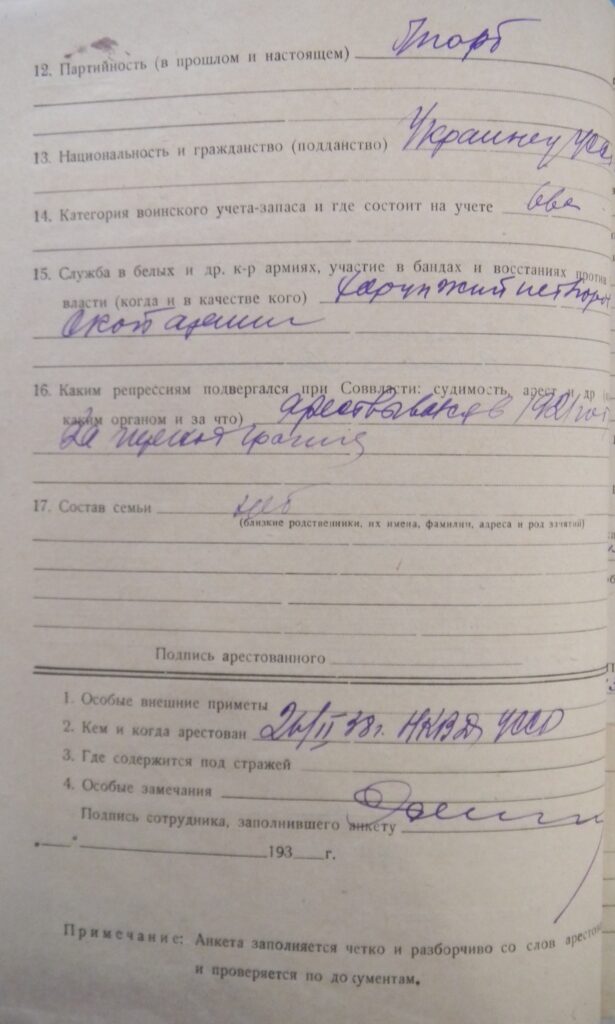 12. Партийность (в прошлом и настоящем)
13. Национальность и гражданство (подданство) Украинец УСС
14. Категория воинского учета-запаса и где состоит на учете
15. Служба в белых и др. к-р армиях, участие в бандах и восстаниях против
власти (когда и в качестве кого) Хорунжий петлюров
ской армии
16. Каким репрессиям подвергался при Соввласти: судимость, арест и др (
каким органом и за что) арествывался в 1921 год
За
17. Состав семьи нет
(близкие родственники, их имена, фамилии, адреса и род занятий)
Подпись арестованного
1. Особые внешние приметы
2. Кем и когда арестован 26/II 38 г. НКВД УССР
3. Где содержится под стражей
4. Особые замечания
Подпись сотрудника, заполнившего анкету
„ “ 193 г.
Примечание: Анкета заполняется четко и разборчиво со слов арестов
и проверяется по документам.